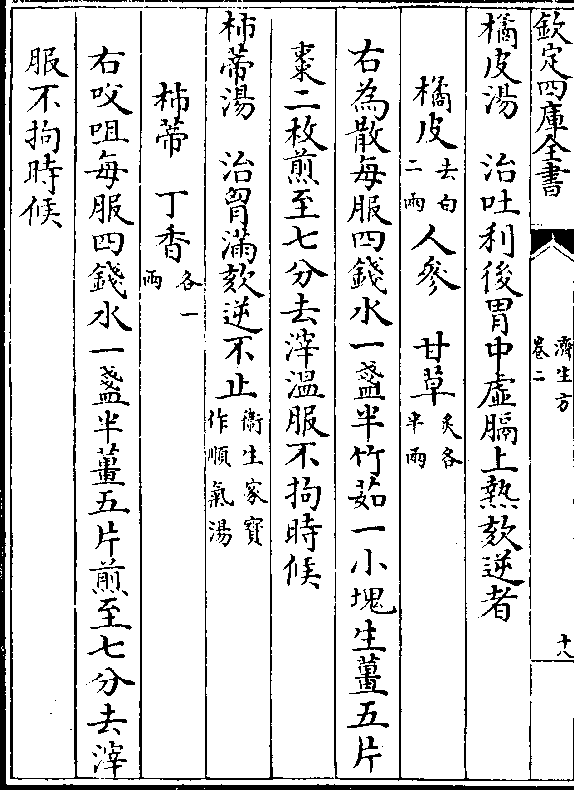 欽定四庫全書
濟生方
卷二
十八
橘皮湯 治吐利後胃中虛膈上熱欬逆者
橘皮去白二兩 人參 甘草炙各半兩
右為散每服四錢水一盞半竹茹一小塊生薑五片
棗二枚煎至七分去滓溫服不拘時候
柿蒂湯 治胷滿欬逆不止衛生家寶作順氣湯
柿蒂 丁香各一兩
右㕮咀每服四錢水一盞半薑五片煎至七分去滓
服不拘時候